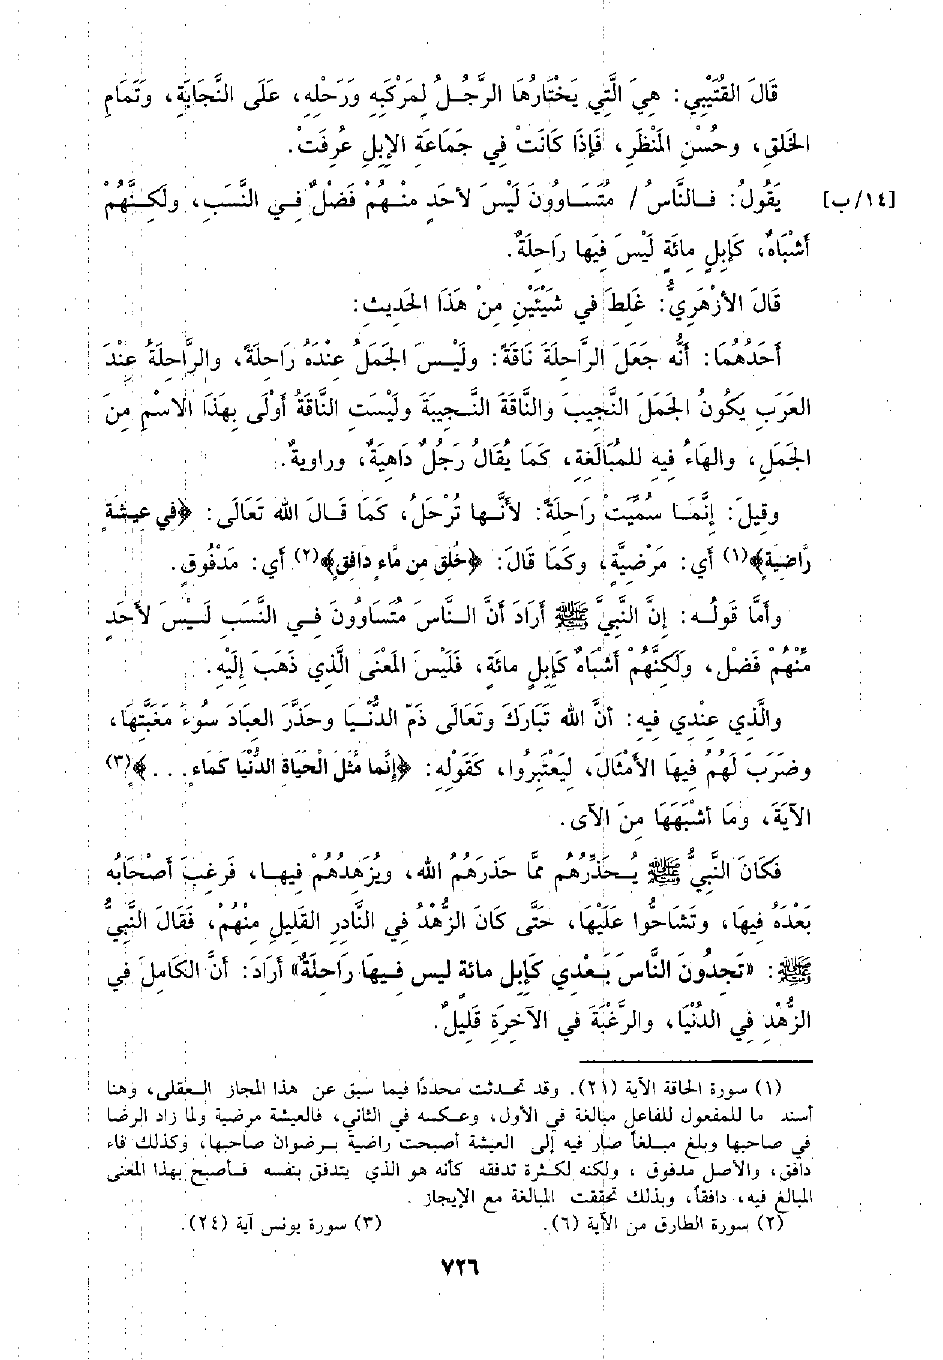 قَالَ القُتَيْبِي: هِيَ الَّتِي يَخْتَارُهَا الرَّجُلُ لِمَرْكَبِهِ ورَحْلِهِ، عَلَى النَّجَابَةِ، وتَمَامِ
الخَلقِ، وحُسْنِ المَنْظَرِ، فَإِذَا كَانَتْ فِي جَمَاعَةِ الإِبِلِ عُرِفَتْ.
[١٤/ب] يَقُولُ: فَالنَّاسُ / مُتَسَاوُونَ لَيْسَ لأَحَدٍ مِنْهُمْ فَضْلٌ فِي النَّسَبِ، ولكِنَّهُمْ
أَشْبَاهٌ، كَإِبِلٍ مائَةٍ لَيْسَ فِيهَا رَاحِلَةٌ.
قَالَ الأزْهَرِيُّ: غَلِطَ في شَيْئَيْنِ مِنْ هَذَا الحَدِيثِ:
أَحَدُهُمَا: أَنَّه جَعَلَ الرَّاحِلَةَ نَاقَةً: ولَيْسَ الجَمَلُ عِنْدَهُ رَاحِلَةً، والرَّاحِلَةُ عِنْدَ
العَرَبِ يَكُونُ الجَمَلَ النَّجِيبَ والنَّاقَةَ النَّجِيبَةَ ولَيْسَتِ النَّاقَةُ أَوْلَى بِهَذَا الاسْمِ مِنَ
الجَمَلِ، والهَاءُ فِيهِ للمُبَالَغَةِ، كَمَا يُقَالُ رَجُلٌ دَاهِيَةٌ، وراويةٌ.
وقِيلَ: إِنَّمَا سُمِّيَتْ رَاحِلَةً: لأَنَّها تُرْحَلُ، كَمَا قَالَ الله تَعَالَى: ﴿في عِيشَةٍ
رَّاضِيَةٍ﴾(١) أي: مَرْضِيَّةٍ، وكَمَا قَالَ: ﴿خُلِقَ مِن مَّاءٍ دافِقٍ﴾(٢) أي: مَدْفُوقٍ.
وأمَّا قَولُه: إِنَّ النَّبِيَّ ﷺ أَرَادَ أنَّ النَّاسَ مُتَسَاوُونَ فِي النَّسَبِ لَيْسَ لأَحَدٍ
مِّنْهُمْ فَضْل، ولَكِنَّهُمْ أَشْبَاهٌ كَإِبِلٍ مائَة، فَلَيْسَ المَعْنَى الَّذي ذَهَبَ إِلَيْهِ.
والَّذِي عِنْدِي فِيه: أنَّ الله تَبَارَكَ وتَعَالَى ذَمَّ الدُّنْيَا وحَذَّرَ العِبَادَ سُوءَ مَغَبَّتِهَا،
وضَرَبَ لَهُمْ فِيهَا الأَمْثَالَ، لِيَعْتَبِرُوا، كَقَوْلِهِ: ﴿إِنَّمَا مَثَلُ الْحَيَاةِ الدُّنْيَا كَمَاءٍ . . .﴾(٣)
الآيَةَ، ومَا أَشْبَهَهَا مِنَ الآى.
فَكَانَ النَّبِيُّ ﷺ يُحَذِّرُهُم مِمَّا حَذَرَهُمُ الله، ويُزَهِدُهُمْ فِيهَا، فَرغِبَ أَصْحَابُه
بَعْدَهُ فِيهَا، وتَشَاحُوا عَلَيْهَا، حَتَّى كَانَ الزُّهْدُ فِي النَّادِرِ القَلِيلِ مِنْهُمْ، فَقَالَ النَّبِيُّ
ﷺ: «تَجِدُونَ النَّاسَ بَعْدِي كَإِبلٍ مائة ليس فِيهَا رَاحِلَةٌ» أَرَادَ: أَنَّ الكَامِلَ فِي
الزُّهْدِ فِي الدُنْيَا، والرَّغْبَةَ فِي الآخِرَةِ قَلِيلٌ.
(١) سورة الحاقة الآية (٢١). وقد تحدثت محددًا فيما سبق عن هذا المجاز العقلي، وهنا
أسند ما للمفعول للفاعل مبالغة في الأول، وعكسه في الثاني، فالعيشة مرضية ولما زاد الرضا
في صاحبها وبلغ مبلغاً صار فيه إلى العيشة أصبحت راضية برضوان صاحبها، وكذلك ماء
دافق، والأصل مدفوق، ولكنه لكثرة تدفقه كأنه هو الذي يتدفق بنفسه فأصبح بهذا المعنى
المبالغ فيه، دافقاً، وبذلك تحققت المبالغة مع الإيجاز.
(٢) سورة الطارق من الآية (٦). (٣) سورة يونس آية (٢٤).
٧٢٦